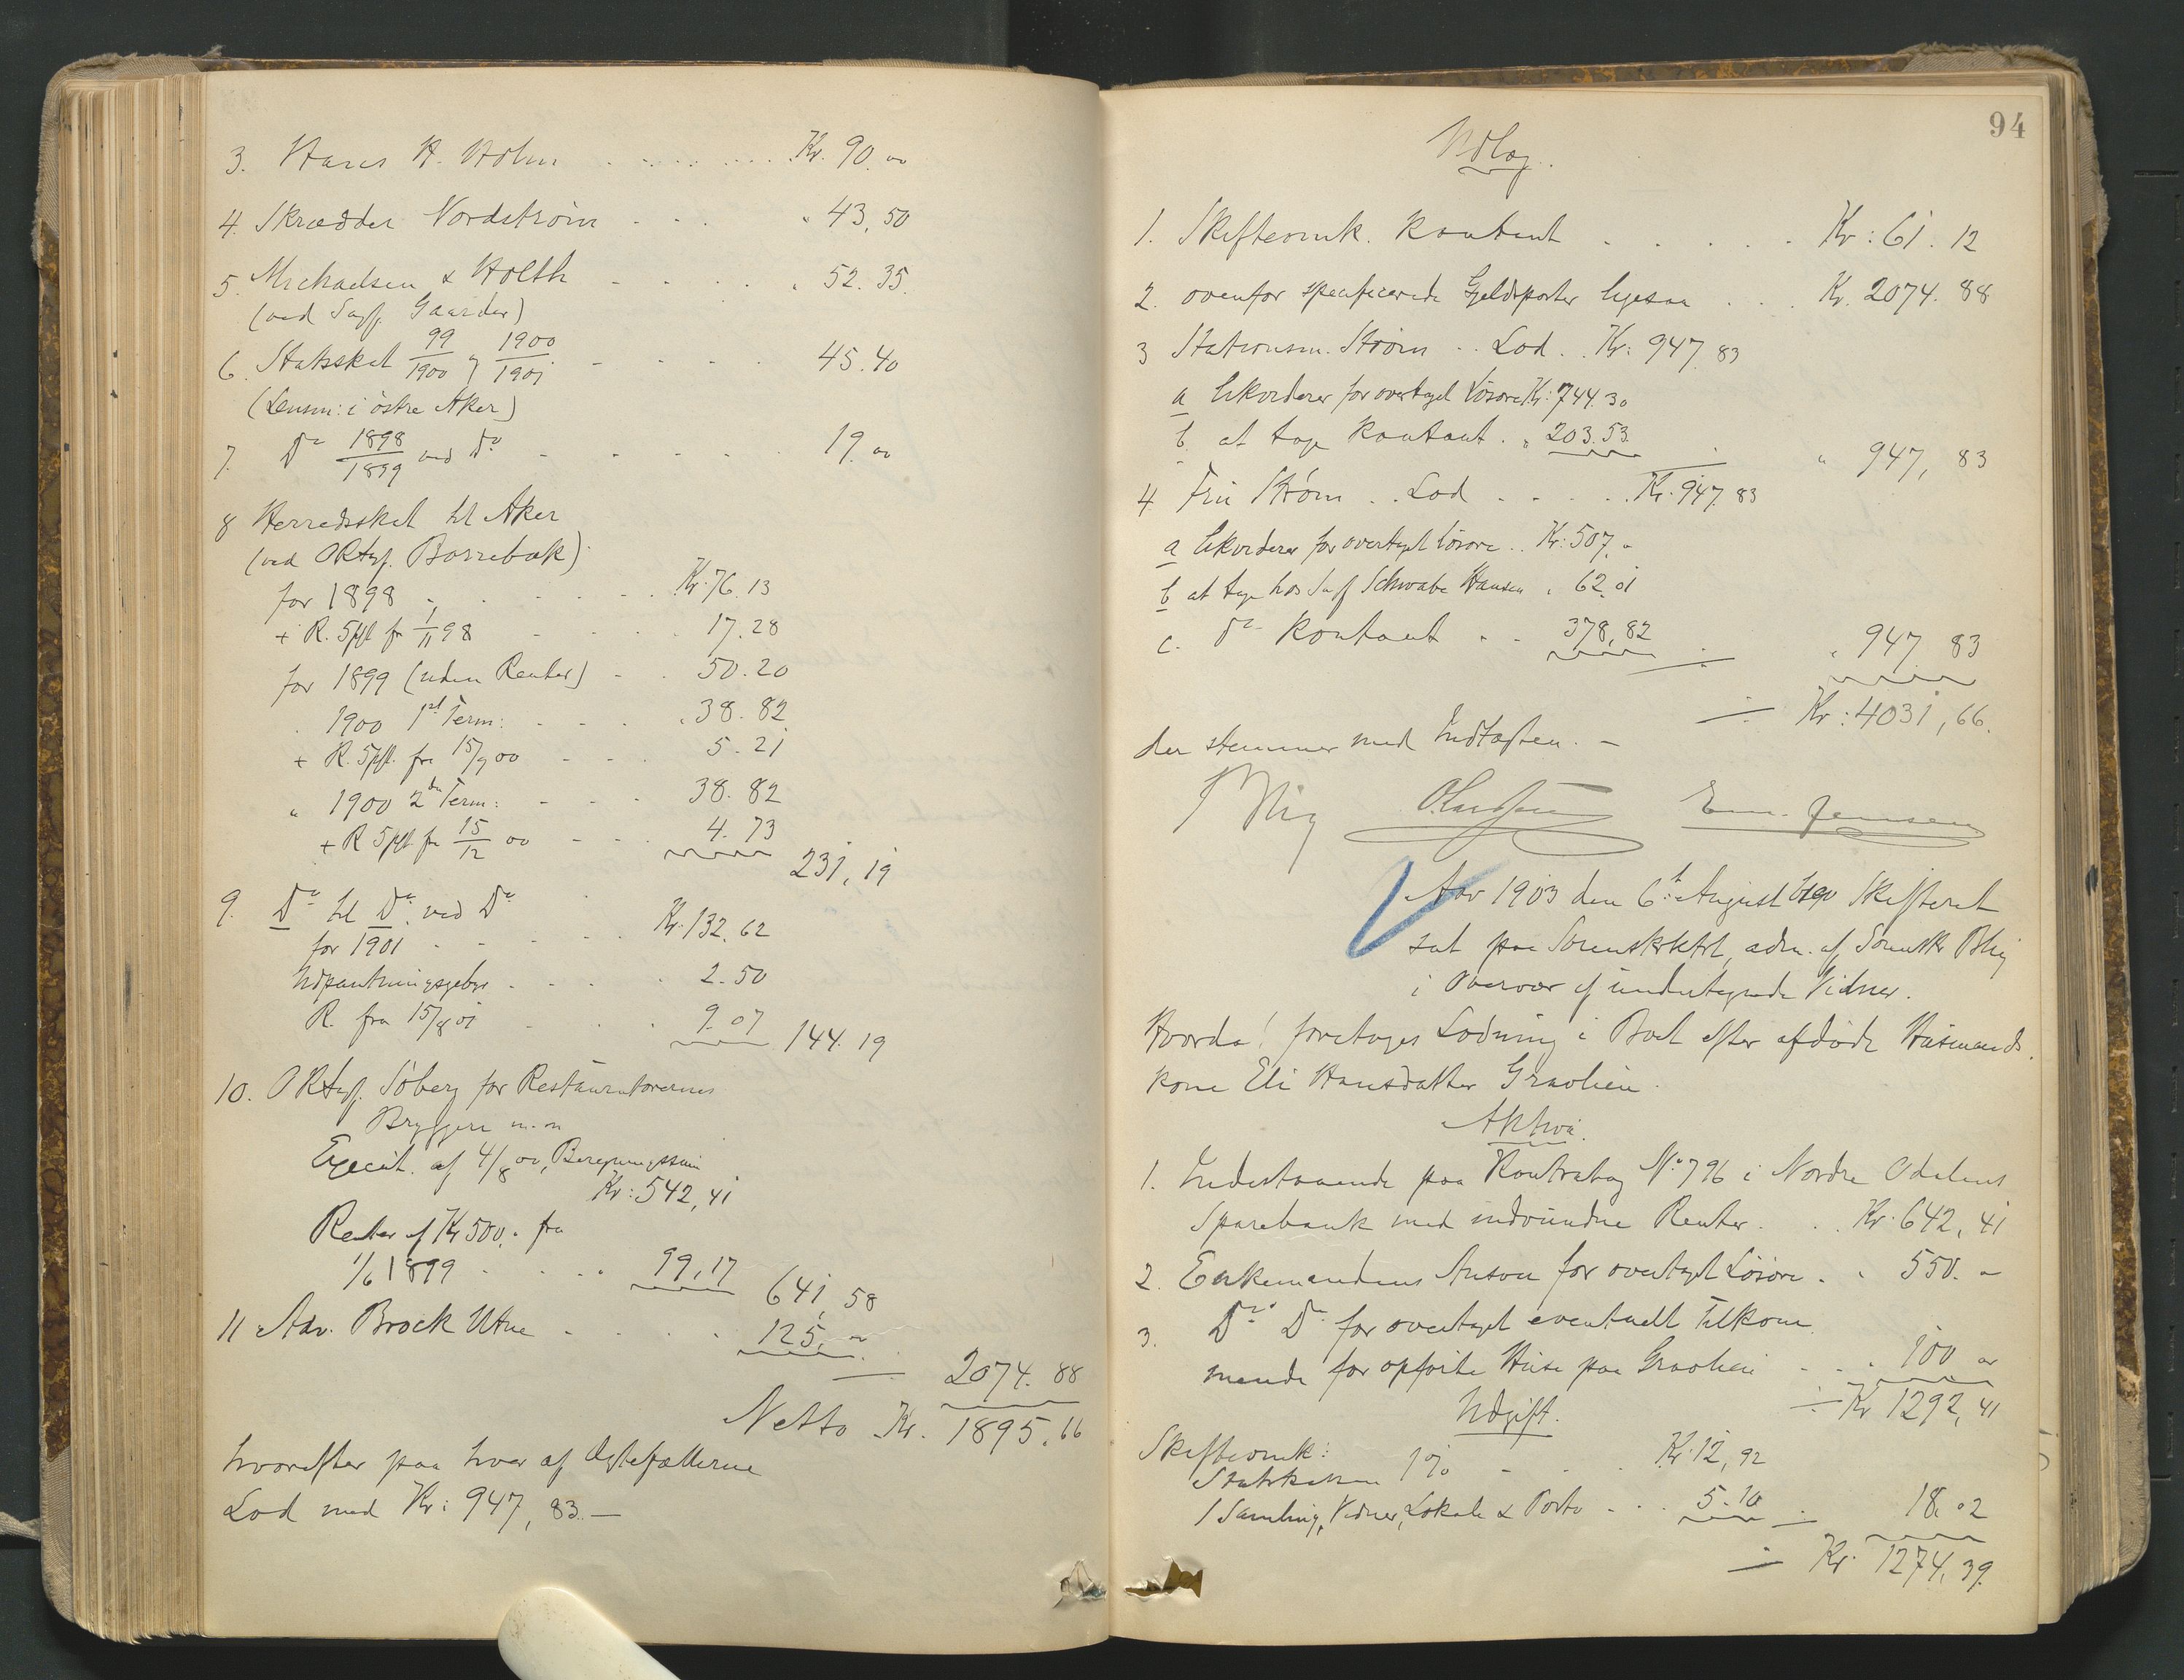 3. Hans H. Holm . . . . . . . Kr. 90.00
4. Skrædder Nordstrøm - - - " 43,50
5. Michaelsen & Holth - - - - " 52.35.
(ved Sagf. Gaarder)
6. Statsskat 99/1900 og 1900/1901 - - - - 45.40
(Lensm: i östre Aker)
7. Do 1898/1899 ved Do - - - - - 19.00
8 Herredsskat til Aker
(ved ORtsf. Borrebæk):
for 1898 - . - - - - Kr. 76.13
+ R. 5pct fr 1/11 98 - - - - 17.28
for 1899 (uden Renter) - . 50.20
" 1900 1st Term: - - - " 38.82
+ R. 5pct. fra 15/9 00 - - - 5.21
" 1900 2den Term: - - - 38.82
+ R 5pct fr 15/12 00 - - - 4.73
231,19
9. Do til Do ved Do
for 1901 - - - - - Kr. 132.62
Udpantningsgebyr - - - - 2.50
R. fra 15/8 01 - - - 9.07 144.19
10. ORtsf. Söberg for Restauratørernes
Bryggeri m.m
Execut. af 4/8 00, Beregningssum
Kr: 542,41
Renter af Kr 500,- fra
1/6 1899 - . . . 99,17 641,58
11 Adv. Brock Utne - - - - 125,00
2074.88
Netto Kr. 1895.66
hvorefter paa hver af Ægtefællerne
Lod med Kr: 947,83.—
94
Udlæg.
1. Skifteomk. kontant . . . . . Kr: 61.12
2. ovenfor specificerede Gjeldsposter ligesaa . . . Kr. 2074.88
3 Stationsm. Strøm . . Lod . . Kr: 947.83
a likviderer for overtaget Lösøre Kr: 744.30
b. at tage kontant . " 203.53 " 947,83
4 Fru Strøm . . Lod - - - - Kr. 947.83
a likviderer for overtaget Lösøre . . Kr: 507.-
b at tage hos Sagf Schwabe Hansen " 62.01
c. do kontant - - 378,82 " 947 83
Kr: 4031,66.
der stemmer med Indtægten. —
Blig Em. Jensen
Aar 1903 den 6te August blev Skifteret
sat paa Sorenskrktrt, adm. af Sorenskr Blig
i Overvær af undertegnede Vidner.
Hvorda! foretages Lodning i Boet efter afdøde Husmands-
kone Eli Hansdatter Graolien.
Aktiva.
1. Indestaaende paa Kontrabog No 796 i Nordre Odalens
Sparebank med indvundne Renter . . Kr. 642,41
2. Enkemandens Ansvar for overtaget Lösøre . " 550.-
3. Do Do for overtaget eventuelt Tilkom-
mende for opførte Huse paa Graolien - - " 100 00
Kr 1292,41
Udgift.
Skifteomk:
Statskassen 1% - - . Kr. 12,92
1 Samling, Vidner, Lokale & Porto - . . 5.10 18.02
Kr. 1274,39.